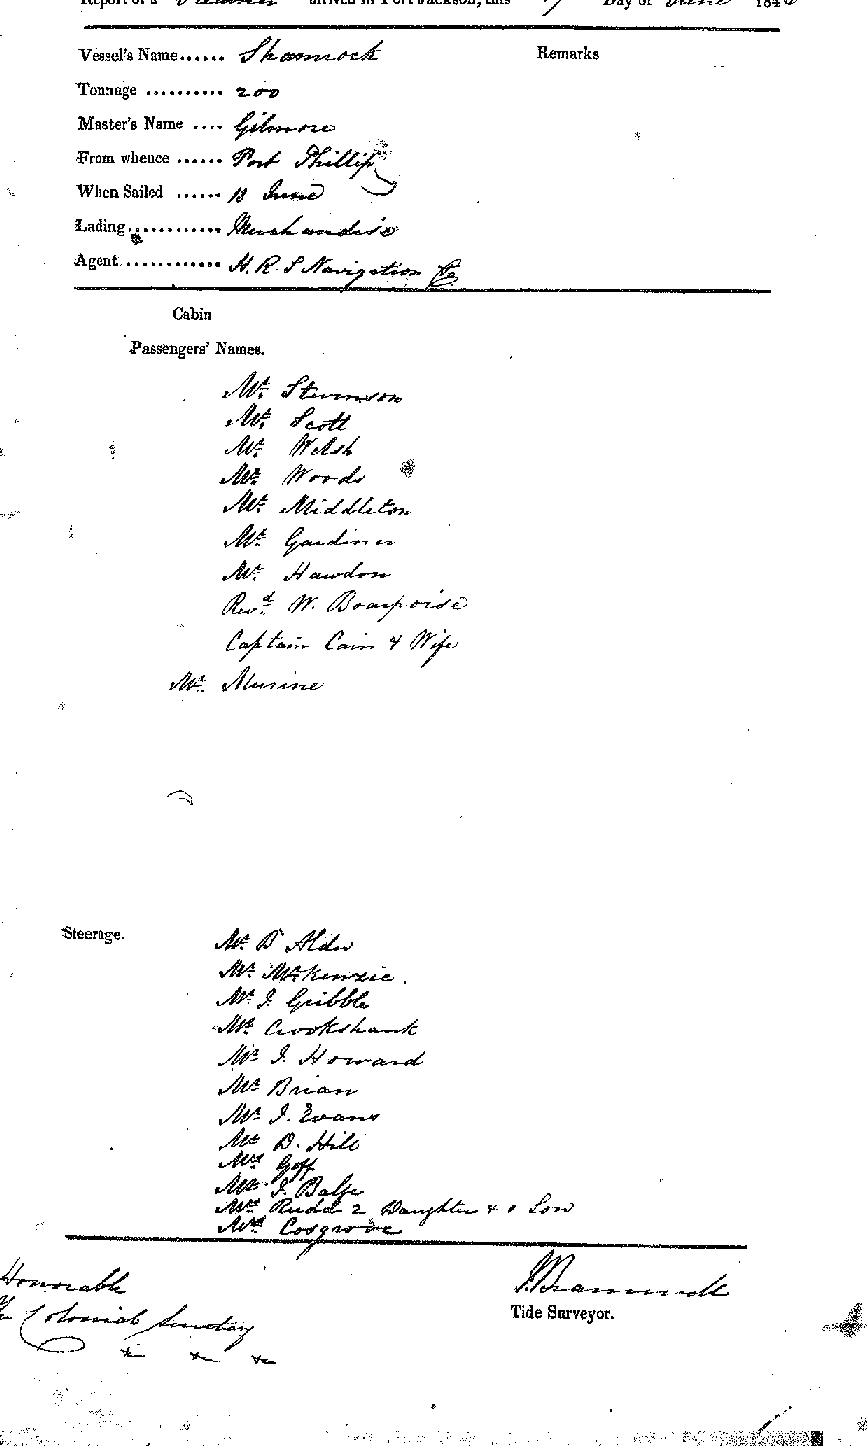 Report of a Steamer arrived in Port Jackson, this Day of June 184
Vessel's Name...... Shamrock Remarks
Tonnage .......... 200
Master's Name .... Gilmore
From whence ...... Port Phillip
When Sailed ...... 13 June
Lading............ Merchandise
Agent............. H. R. S Navigation Co
Cabin
Passengers' Names.
Mr. Stevenson
Mr. Scott
Mr. Welsh
Mr. Woods
Mr. Middleton
Mr. Gardiner
Mr. Hawdon
Revd. W.
Captain Cain & Wife
Mr.
Steerage.
Mr. D Alder
Mr. McKenzie.
Mr. J. Gribble
Mr. Crookshank
Mr. J. Howard
Mr. Brian
Mr. J. Evans
Mr. D. Hill
Goff
Mr. J. Balfe
Rudd 2 Daughter & Son
Mrs. Cosgrove
Honorable
The Colonial Secretary
Tide Surveyor.